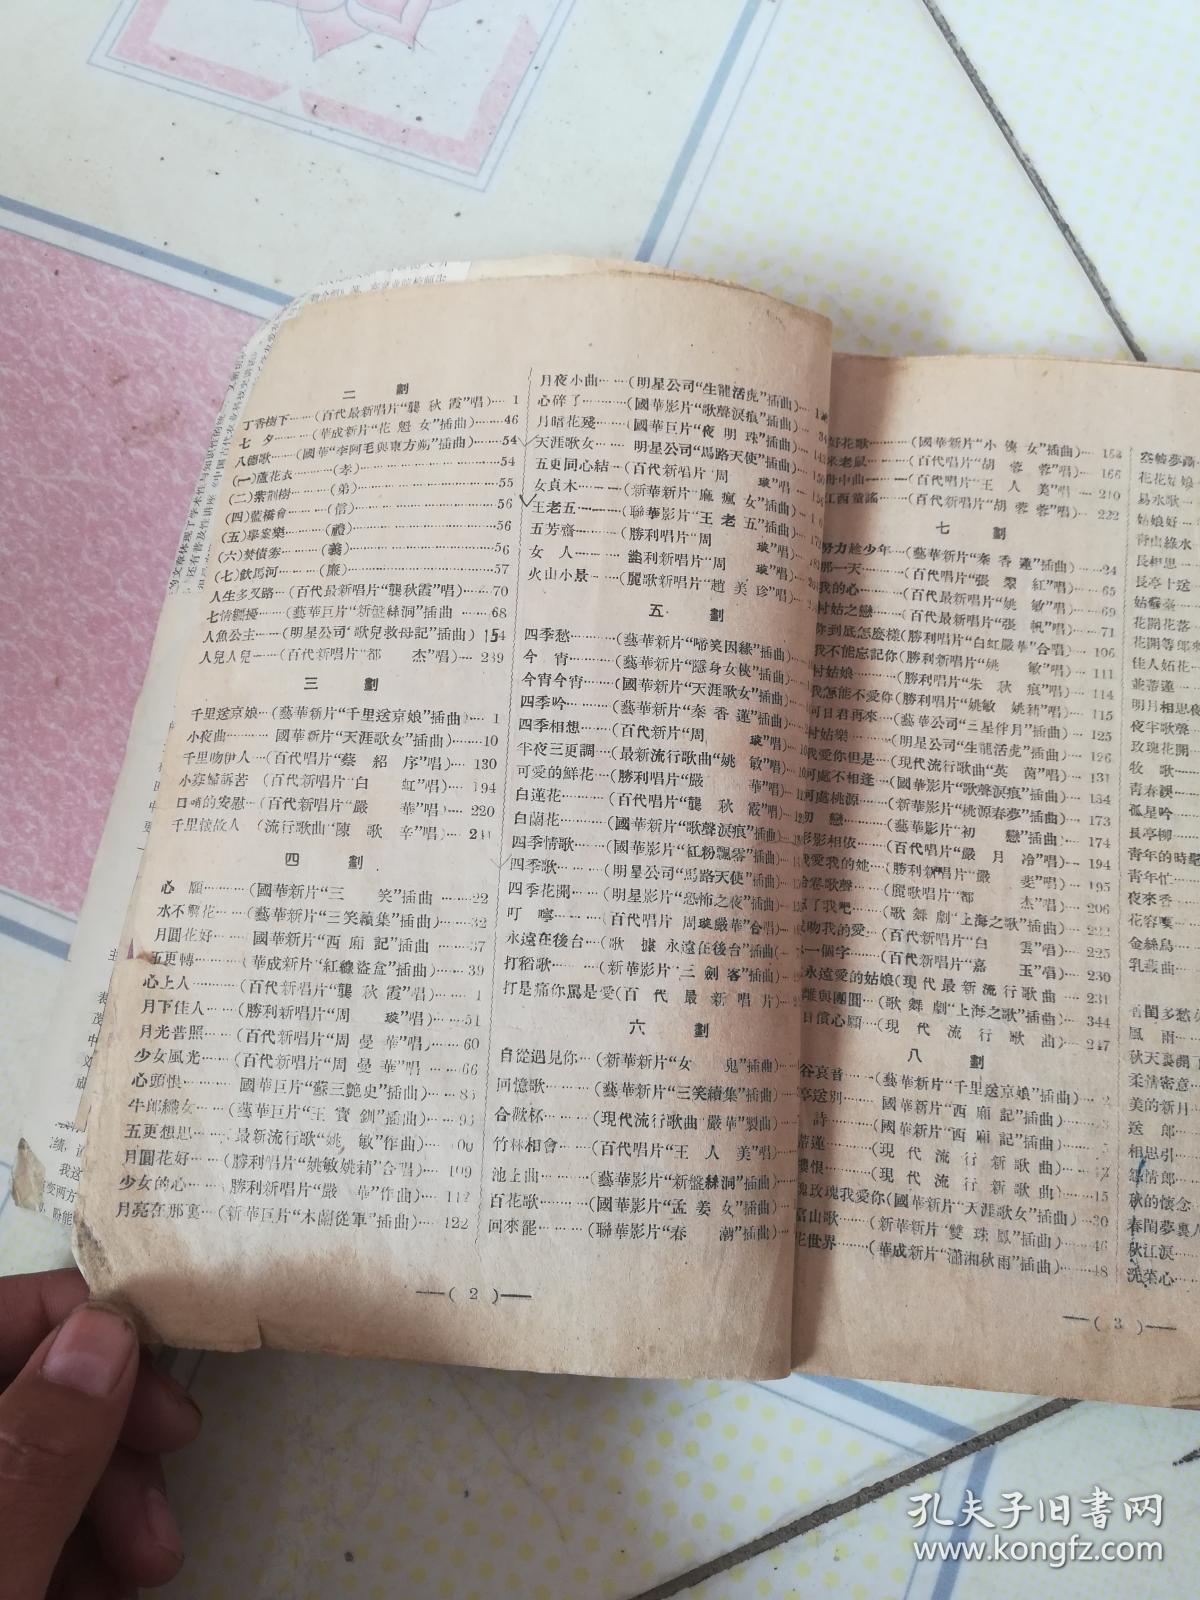 二 劃
丁香樹下……(百代最新唱片“龔秋霞”唱)… 1
七 夕……(華成新片“花魁女”插曲)……46
八德歌……(國華“李阿毛與東方朔”插曲)……54
(一)蘆花衣………(孝)………54
(二)紫荆樹………(弟)………55
(四)藍橋會………(信)………56
(五)舉案樂………(禮)………56
(六)焚債劵………(義)………56
(七)飲馬河………(廉)………57
人生多叉路…(百代最新唱片“龔秋霞”唱)……70
七情纒擾……(藝華巨片“新盤絲洞”插曲……68
人魚公主……(明星公司“歌兒救母記”插曲) 154
人兒人兒……(百代新唱片“都 杰”唱)… 239
三 劃
千里送京娘…(藝華新片“千里送京娘”插曲)… 1
小夜曲…… 國華新片“天涯歌女”插曲)……10
千里吻伊人…(百代唱片“蔡紹序”唱)… 130
小寡婦訴苦 (百代新唱片“白 虹”唱)… 194
口哨的安慰…(百代新唱片“嚴 華”唱)… 220
千里懷故人 (流行歌曲“陳歌辛”唱)…
四 劃
心 願……(國華新片“三 笑”插曲……22
水不驚花…(藝華新片“三笑續集”插曲)……32
月圓花好… 國華新片“西廂記”插曲……37
五更轉……(華成新片“紅線盜盒”插曲)……39
心上人……(百代新唱片“龔秋霞”唱)
月下佳人…(勝利新唱片“周 璇”唱)……51
月光普照…(百代新唱片“周曼華”唱)……60
少女風光……(百代新唱片“周曼華……66
心頭恨…… 國華巨片“蘇三艶史”插曲)
牛郎織女…(藝華巨片“王寶釧”插曲)
五更想思… 最新流行歌“姚敏”作曲)
月圓花好…(勝利唱片“姚敏姚莉”合唱)… 109
少女的心… 勝利新唱片“嚴華”作曲)… 112
月亮在那裏…(新華巨片“木蘭從軍”插曲)… 122
月夜小曲……(明星公司“生龍活虎”插曲)
心碎了……(國華影片“歌聲淚痕”插曲)
月暗花殘……(國華巨片“夜明珠”插曲)
天涯歌女…… 明星公司“馬路天使”插曲)
五更同心結…(百代新唱片 周 璇”唱
女貞木……(新華新片“麻瘋女”插曲)
王老五……(聯華影片“王老五”插曲)
五芳齋……(勝利唱片“周 璇”唱)
女 人…… 勝利新唱片“周 璇”唱)
火山小景…(麗歌新唱片“趙美珍”唱)
五 劃
四季愁………(藝華新片“啼笑因緣”插曲)
今 宵………(藝華新片“隱身女俠”插曲)
今宵今宵……(國華新片“天涯歌女”插曲)
四季吟………(藝華新片“秦香蓮”插曲)
四季相想……(百代新片“周 璇”唱)
半夜三更調…(最新流行歌曲“姚敏”唱)
可愛的鮮花…(勝利唱片“嚴 華”唱)
白蓮花………(百代唱片“龔秋霞”唱)
白蘭花………(國華新片“歌聲淚痕”插曲)
四季情歌……(國華影片“紅粉飄零”插曲)
四季歌………(明星公司“馬路天使”插曲)
四季花開……(明星影片“恐怖之夜”插曲)
叮 嚀………(百代唱片 周璇嚴華”合唱)
永遠在後台…(歌劇 永遠在後台”插曲)
打稻歌………(新華影片“三劍客”插曲)
打是痛你駡是愛(百代最新唱片)
六 劃
自從遇見你…(新華新片“女 鬼”插曲)
回憶歌………(藝華新片“三笑續集”插曲)
合歡杯………(現代流行歌曲“嚴華”製曲)
竹林相會……(百代唱片“王人美”唱)
池上曲………(藝華影片“新盤絲洞”插曲)
百花歌………(國華影片“孟姜女”插曲)
回來罷………(聯華影片“春 潮”插曲)
——( 2 )——
好花歌……(國華新片“小俠女”插曲)… 153
米老鼠……(百代唱片“胡蓉蓉”唱)… 166
舟中曲……(百代唱片“王人美”唱)… 210
江西童謠……(百代新唱片“胡蓉蓉”唱)… 222
七 劃
努力趁少年…(藝華新片“秦香蓮”插曲)……24
那一天……(百代唱片“張翠紅”唱)……65
我的心……(百代最新唱片“姚敏”唱)……69
村姑之戀…(百代最新唱片“張帆”唱)……71
你到底怎麽樣(勝利唱片“白虹嚴華”合唱)… 106
我不能忘記你(勝利新唱片“姚 敏”唱)… 111
村姑娘……(勝利唱片“朱秋痕”唱)… 114
我怎能不愛你(勝利唱片“姚敏 姚莉”唱)… 115
何日君再來…(藝華公司“三星伴月”插曲)… 125
村姑樂……(明星公司“生龍活虎”插曲)… 126
我愛你但是…(現代流行歌曲“英茵”唱)… 131
何處不相逢…(國華影片“歌聲淚痕”插曲)… 134
何處桃源……(新華影片“桃源春夢”插曲)… 173
初 戀……(藝華影片“初 戀”插曲)… 174
形影相依……(百代唱片“嚴月冷”唱)… 194
我愛我的她…(勝利新片“嚴 斐”唱)… 195
(麗歌唱片“都 杰”唱)… 206
忘了我吧……(歌舞劇“上海之歌”插曲)…
吻我的愛…(百代新唱片“白 雲”唱)… 225
一個字……(百代新唱片“嘉 玉”唱)… 230
永遠愛的姑娘(現代最新流行歌曲… 231
離與團圓…(歌舞劇“上海之歌”插曲)… 344
日償心願…(現代流行歌曲)… 247
八 劃
谷哀音…(藝華新片“千里送京娘”插曲)
亭送別… 國華新片“西廂記”插曲)
詩……(國華新片“西廂記”插曲)
蓮……(現代流行新歌曲)
恨……(現代流行新歌曲)……15
玫瑰我愛你(國華新片“天涯歌女”插曲)……30
富山歌……(新華新片“雙珠鳳”插曲)……46
花世界……(華成新片“瀟湘秋雨”插曲)……48
——( 3 )——
花花姑娘
易水歌
姑娘好
青山綠水
長相思
長亭十送
姑蘇臺
花開花落
花開等郎來
佳人妬花
並蒂蓮
明月相思夜
夜半歌聲
玫瑰花開
牧 歌
青春誤
孤星吟
長亭柳
青年的時髦
青年忙
夜來香
花容
金絲鳥
乳燕曲
春閨多愁
鳳 雨
秋天裏開了
柔情密意
美的新月
送 郎
相思引
怨情郎
秋的懷念
春閨夢裏人
秋江淚
洗菜心
孔夫子旧书网
www.kongfz.com